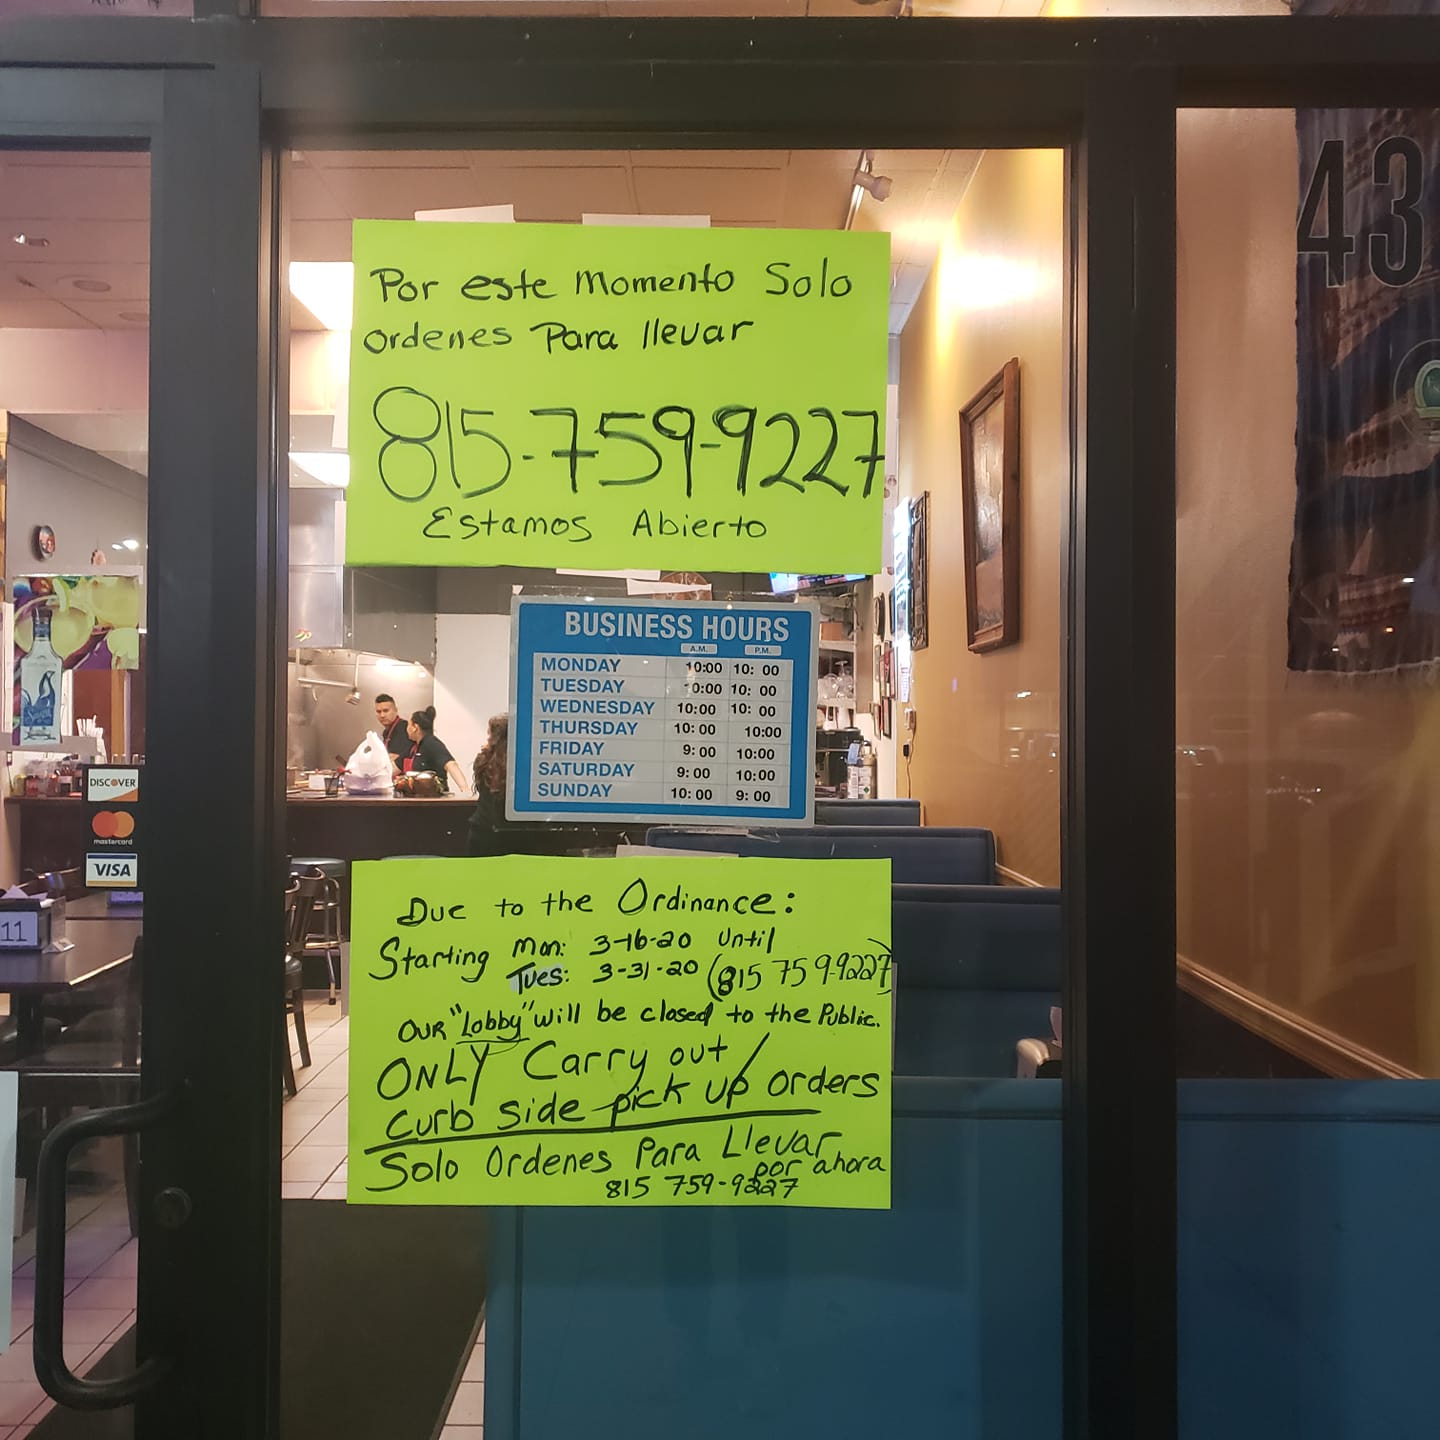 Por este Momento Solo
ordenes Para llevar
815-759-9227
Estamos Abierto
BUSINESS HOURS
A.M. P.M.
MONDAY 10:00 10:00
TUESDAY 10:00 10:00
WEDNESDAY 10:00 10:00
THURSDAY 10:00 10:00
FRIDAY 9:00 10:00
SATURDAY 9:00 10:00
SUNDAY 10:00 9:00
Due to the Ordinance:
Starting Mon: 3-16-20 Until
Tues: 3-31-20 (815 759-9227)
OUR "Lobby" will be closed to the Public.
ONLY Carry out /
curb side pick up orders
Solo Ordenes Para Llevar
por ahora
815 759-9227
DISCOVER
mastercard
VISA
11
43